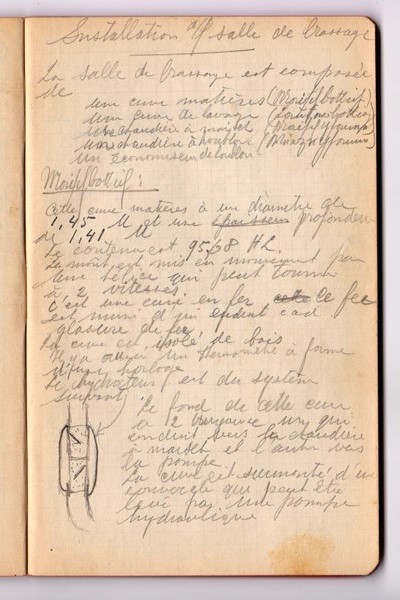 Installation d/l salle de brassage
La salle de brassage est composée
de
une cuve matières (Maischbottich)
une cuve de lavage
une chaudière à maisch
une chaudière à houblon
un économiseur de houblon
Maischbottich :
Cette cuve matières à un diamètre de
1,45 M et une epaisseur profondeur
de 1,41 M
Le contenu est 95,68 HL.
La mout est mis en mouvement par
une hélice qui peut tourner
à 2 vitesses
C'est une cuve en fer, cette ce fer
est muni d'un enduit c.a.d
glasure de fer
La cuve est isolé de bois
Il y a aussi un thermomètre à forme
d'une horloge
Le hydrateur est du système
suivant
Le fond de cette cuve
à 2 un qui
conduit vers la chaudière
à maisch et l'autre vers
la pompe.
La cuve est surmonté d'un
couvercle qui peut être
levé par une pompe
hydraulique